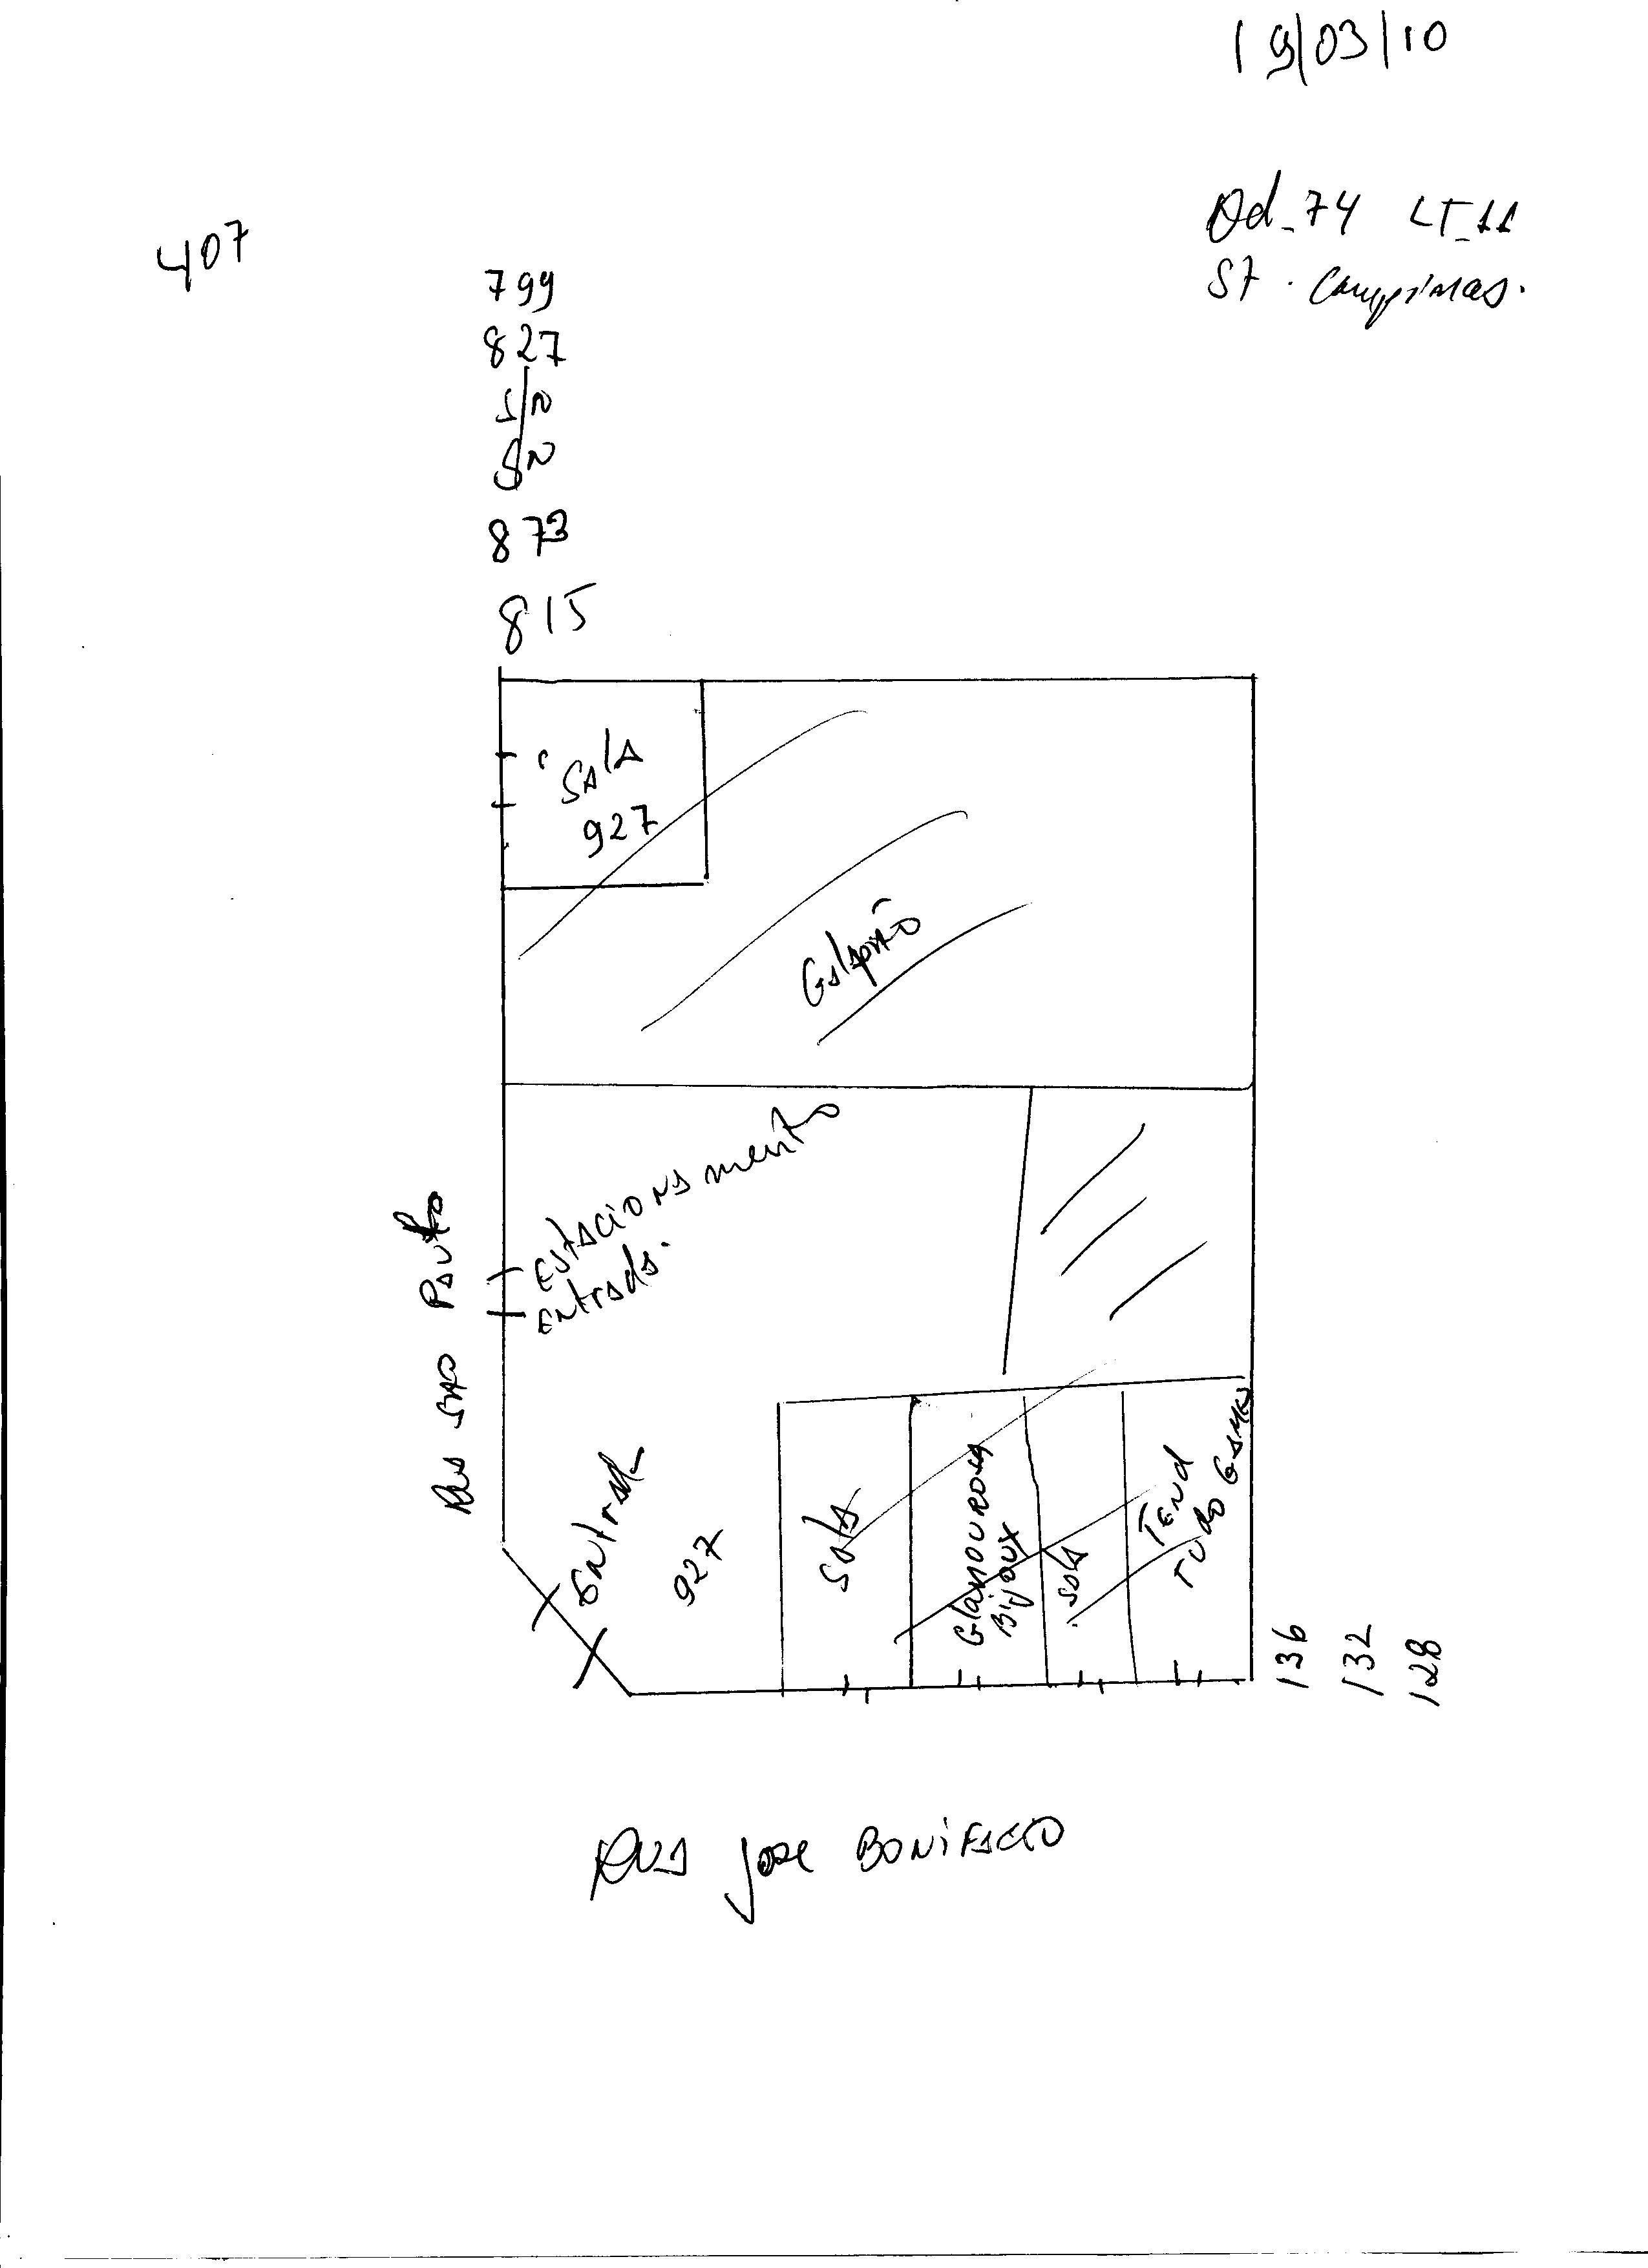 19/03/10
Qd_74 LT_11
St. Campinas.
407
799
827
S/N
S/N
873
815
SALA
927
Galpão
Estacionamento
Entrada.
Rua Sao Paulo
Entrada
927
Sala
Glamourosa
Bijoux
Sala
Tend
Tudo
136
132
128
Rua Jose Bonifacio